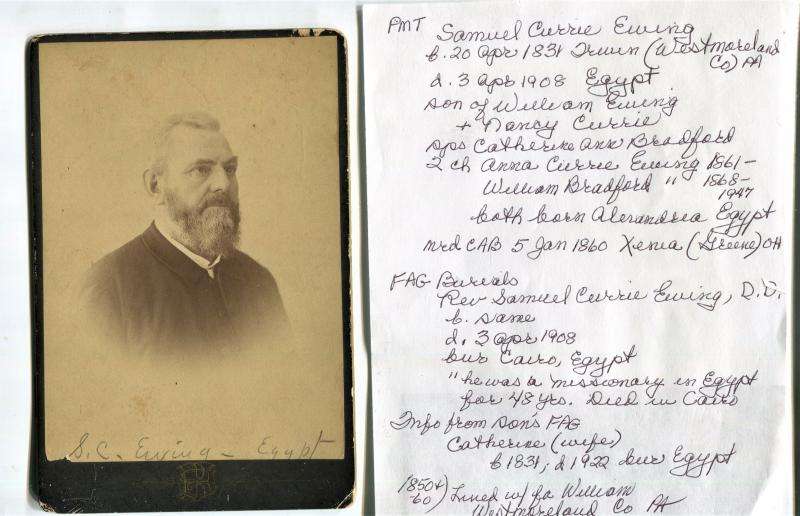 S.C. Ewing - Egypt
PMT Samuel Currie Ewing
b. 20 Apr 1831 Irwin (Westmoreland
Co) PA
d. 3 Apr 1908 Egypt
son of William Ewing
+ Nancy Currie
sps Catherine Ann Bradford
2 ch Anna Currie Ewing 1861-
William Bradford " 1868-
1947
both born Alexandria Egypt
mrd CAB 5 Jan 1860 Xenia (Greene) OH
FAG Burials
Rev Samuel Currie Ewing, D.D.
b. same
d. 3 Apr 1908
bur Cairo, Egypt
"he was a missionary in Egypt
for 48 yrs. Died in Cairo
Info from sons FAG
Catherine (wife)
b 1831; d 1922 bur Egypt
1850+
60) Lived w/ fa William
Westmoreland Co PA